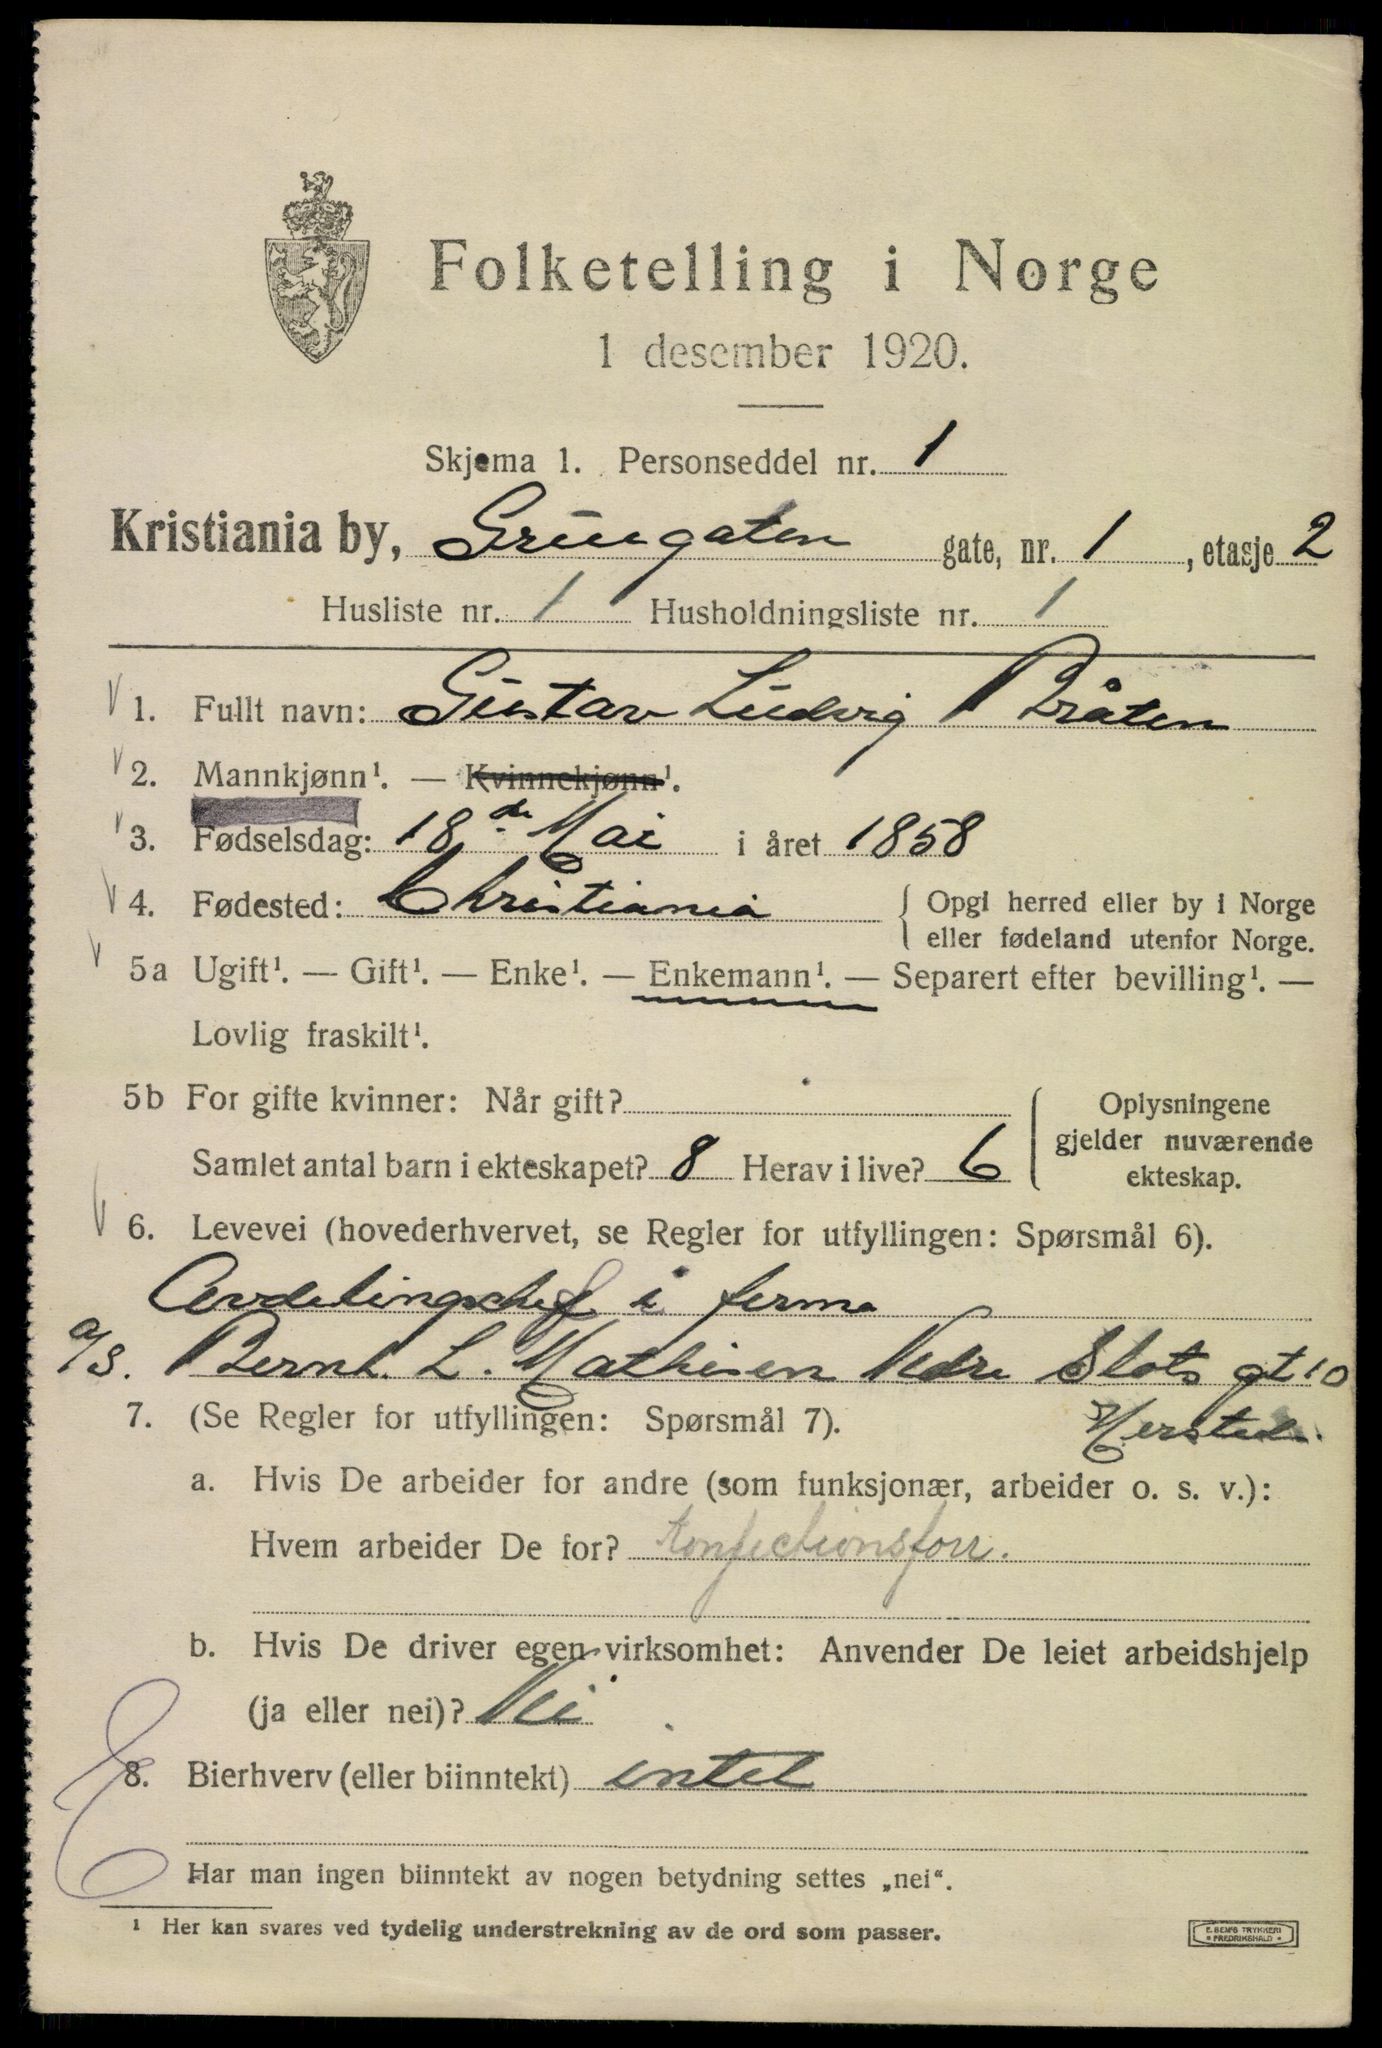 Folketelling i Norge
1 desember 1920.
Skjema 1. Personseddel nr. 1
Kristiania by, Grüngaten gate, nr. 1, etasje 2
Husliste nr. 1 Husholdningsliste nr. 1
1. Fullt navn: Gustav Ludvig Bråten
2. Mannkjønn¹. — Kvinnekjønn¹.
3. Fødselsdag: 18de Mai i året 1858
4. Fødested: Christiania { Opgi herred eller by i Norge
eller fødeland utenfor Norge.
5a Ugift¹. — Gift¹. — Enke¹. — Enkemann¹. — Separert efter bevilling¹. —
Lovlig fraskilt¹.
5b For gifte kvinner: Når gift?
Samlet antal barn i ekteskapet? 8 Herav i live? 6
Oplysningene
gjelder nuværende
ekteskap.
6. Levevei (hovederhvervet, se Regler for utfyllingen: Spørsmål 6).
Avdelingschef i ferma
a/s. Bernh. L. Mathisen Nedre Slots gt 10
7. (Se Regler for utfyllingen: Spørsmål 7).
a. Hvis De arbeider for andre (som funksjonær, arbeider o. s. v.):
Hvem arbeider De for? Konfectionsforr.
b. Hvis De driver egen virksomhet: Anvender De leiet arbeidshjelp
(ja eller nei)? Nei
8. Bierhverv (eller biinntekt) intet
Har man ingen biinntekt av nogen betydning settes „nei“.
¹ Her kan svares ved tydelig understrekning av de ord som passer.
E. SEM'S TRYKKERI
FREDRIKSHALD